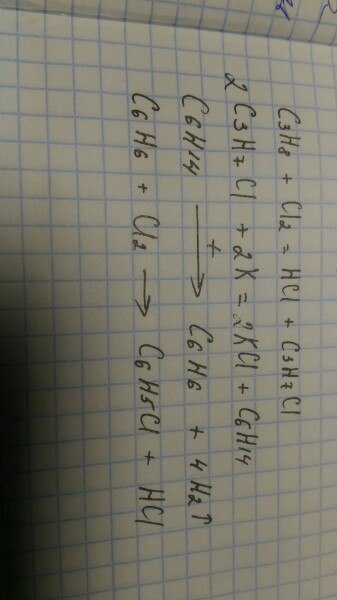 C3H8 + Cl2 = HCl + C3H7Cl
2C3H7Cl + 2K = 2KCl + C6H14
C6H14 —+→ C6H6 + 4H2↑
C6H6 + Cl2 → C6H5Cl + HCl